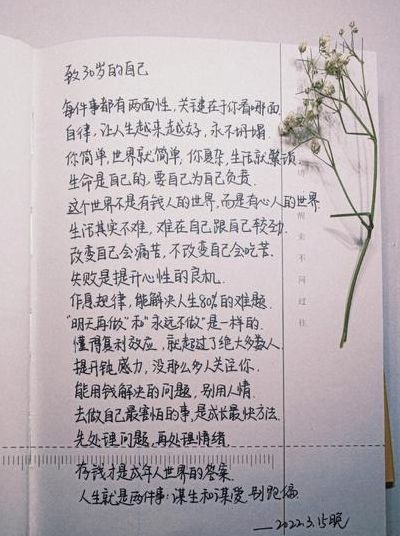 致30岁的自己
每件事都有两面性，关键在于你看哪面
自律，让人生越来越好，永不坍塌
你简单，世界就简单，你复杂，生活就繁琐
生命是自己的，要自己为自己负责．
这个世界不是有钱人的世界，而是有心人的世界．
生活其实不难，难在自己跟自己较劲．
改变自己会痛苦，不改变自己会吃苦．
失败是提升心性的良机．
作息规律，能解决人生80%的难题．
"明天再做"和"永远不做"是一样的．
懂得复利效应，就超过了绝大多数人．
提升钝感力，没那么多人关注你．
能用钱解决的问题，别用人情．
去做自己最害怕的事，是成长最快方法．
先处理问题，再处理情绪．
存钱才是成年人世界的答案．
人生就是两件事：谋生和谋爱，别跑偏．
——2022.3.15晚
醒来不问过往